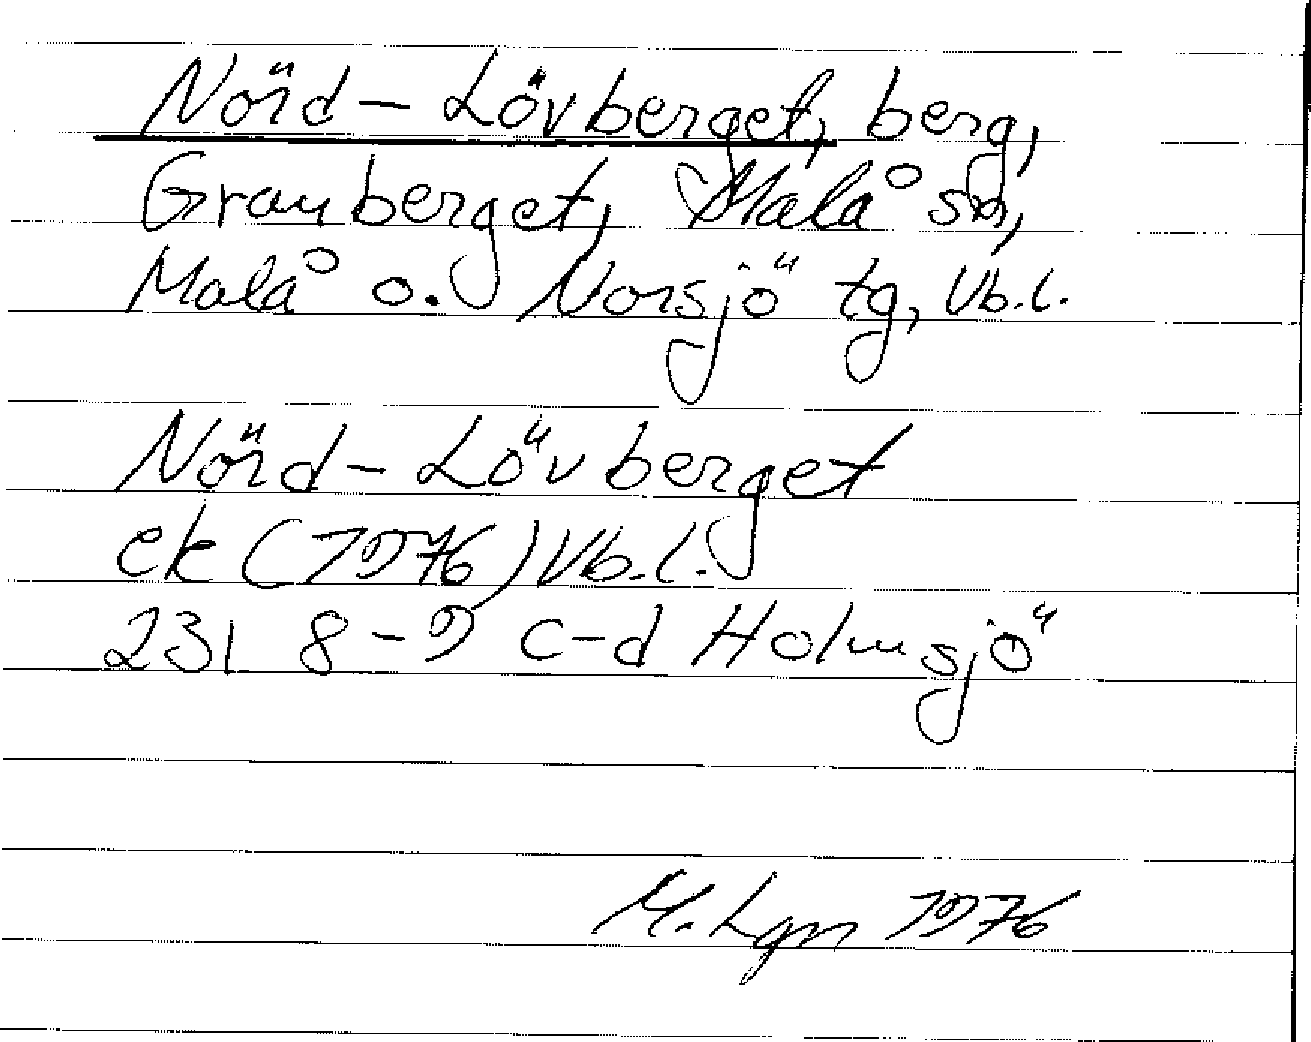 Nörd-Lövberget, berg,
Granberget, Malå sn,
Malå o. Norsjö tg, Vb.l.
Nörd-Lövberget
ek (1976) Vb.l.
23I 8-9 c-d Holmsjö
M. Lgn 1976